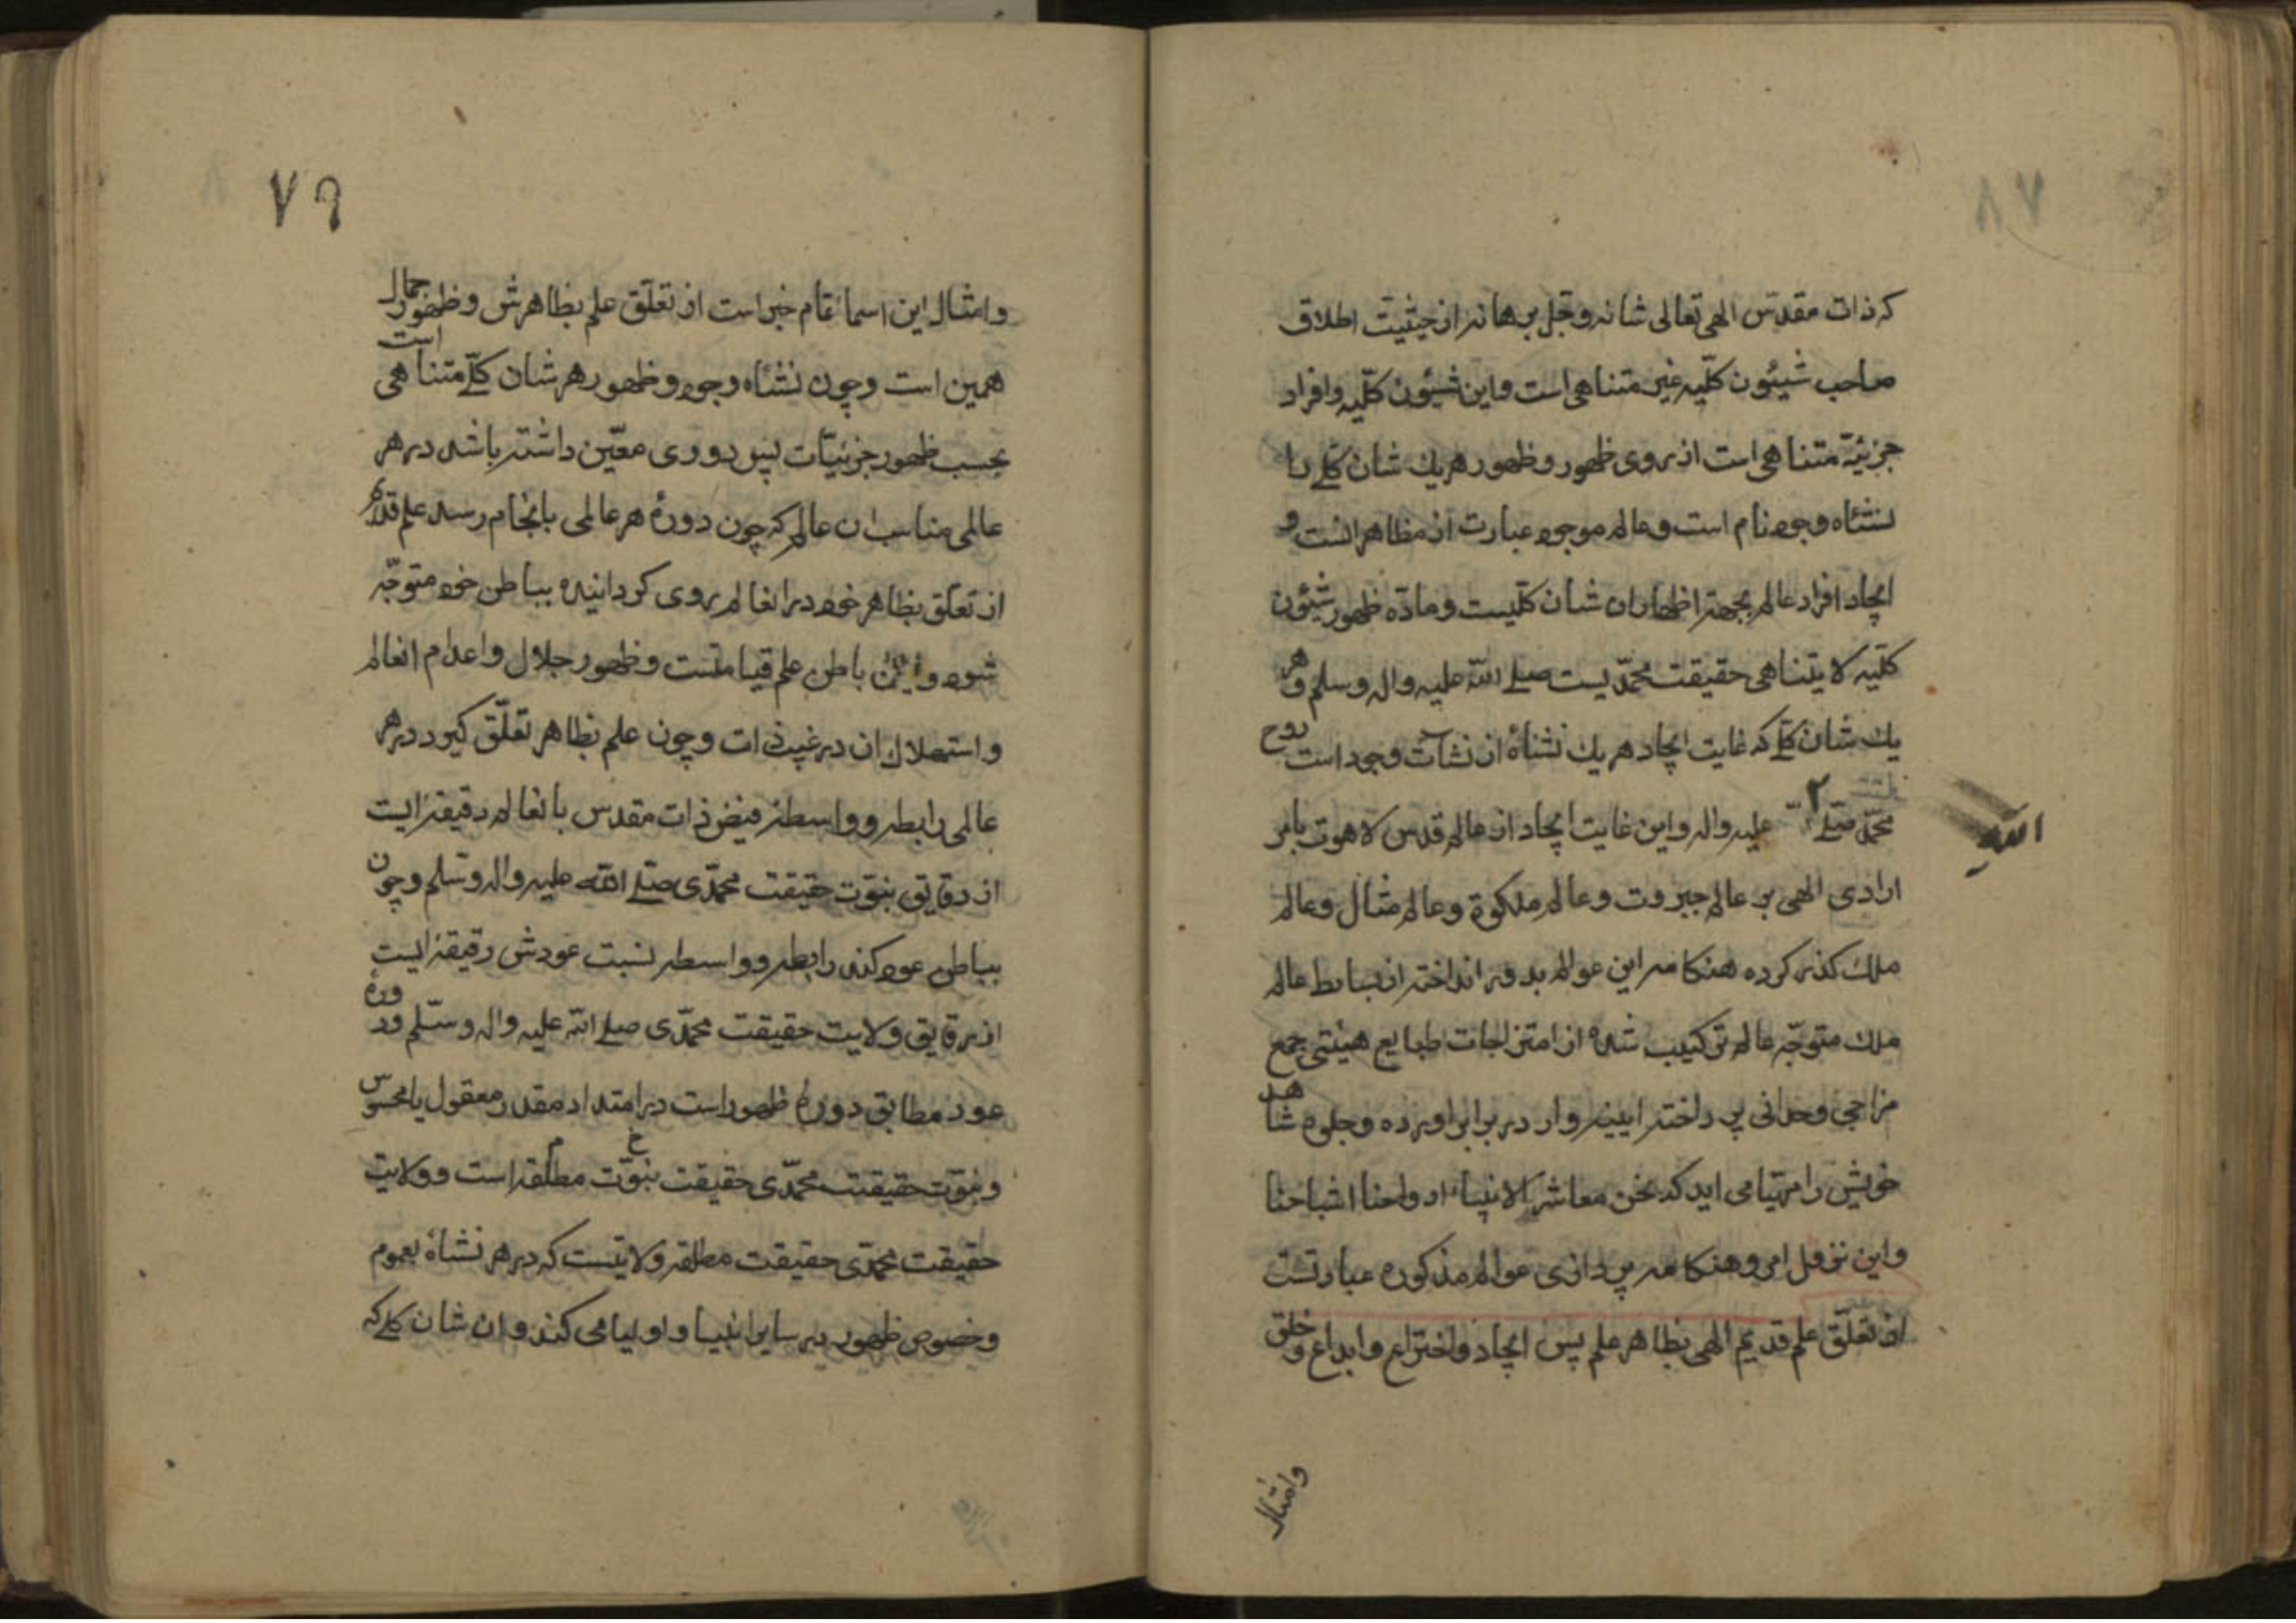 که ذات مقدس الهی تعالی شانه وجل برهانه از حیثیت اطلاق
صاحب شیئون کلّیه غیر متناهی است و این شیئون کلّیه و افراد
جزئیّه متناهی است از روی ظهور و ظهور هر یك شان کلّے را
نشئاه وجود نام است و عالم موجود عبارت از مظاهر انست و
ایجاد افراد عالم بجهة اظهار ان شان کلّیست و مادّه ظهور شیئون
کلّیه لا یتناهی حقیقت محمّدیست صلے اللّه علیه واله وسلم و هر
یك شان کلّے که غایت ایجاد هر یك نشئاۀ از نشآت وجود است روح
محمّد صلّے اللّه علیه واله و این غایت ایجاد از عالم قدس لاهوت بامر
ارادی الهی بر عالم جبروت و عالم ملکوة و عالم مثال و عالم
ملك کذر کرده هنکامه این عوالم بدور انداخته از بسایط عالم
ملك متوجّه عالم ترکیب شده از امتزاجات طبایع هیئتی جمع
مزاجی وحدانی پرداخته ایینه وار در برابر اورده و جلوه شاهد
خویش را مهیا می اید که نحن معاشر الانبیاء ارواحنا اشباحنا
و این نزول امر و هنکامه پردازی عوالم مذکوره عبارتست
از تعلّق علم قدیم الهی بظاهر علم پس ایجاد و اختراع و ابداع و خلق
وامثال
٧٩
وامثال این اسما تمام خبر است از تعلّق علم بظاهرش و ظهور جمال
همین است و چون نشئاه وجود و ظهور هر شان کلّے متناهی است
بحسب ظهور جزئیّات پس دوری معّین داشته باشد در هر
عالمی مناسب ان عالم که چون دورۀ هر عالمی بانجام رسد علم قدیم
از تعلّق بظاهر خود در انعالم روی کردانیده بباطن خود متوجّه
شود و باطن علم قیامتست و ظهور جلال و اعدام انعالم
و استهلاك ان در غیب ذات و چون علم بظاهر تعلّق کیرد در هر
عالمی رابطه و واسطۀ فیض ذات مقدس بانعالم رقیقۀ ایست
از دقایق نبوّت حقیقت محمّدی صلّے اللّه علیه واله وسلم و چون
بباطن عود کند رابطه و واسطه نسبت عودش رقیقۀ ایست
از رقایق ولایت حقیقت محمّدی صلے اللّه علیه واله وسلّم و دورۀ
عود مطابق دورۀ ظهور است در امتداد مقدر معقول یا محسوس
و نبوّت حقیقت محمّدی حقیقت نبوّت مطلقه است و ولایت
حقیقت محمّدی حقیقت مطلقه ولایتست که در هر نشاۀ بعموم
و خصوص ظهور در سایر انبیا و اولیا می کند و ان شان کلے که